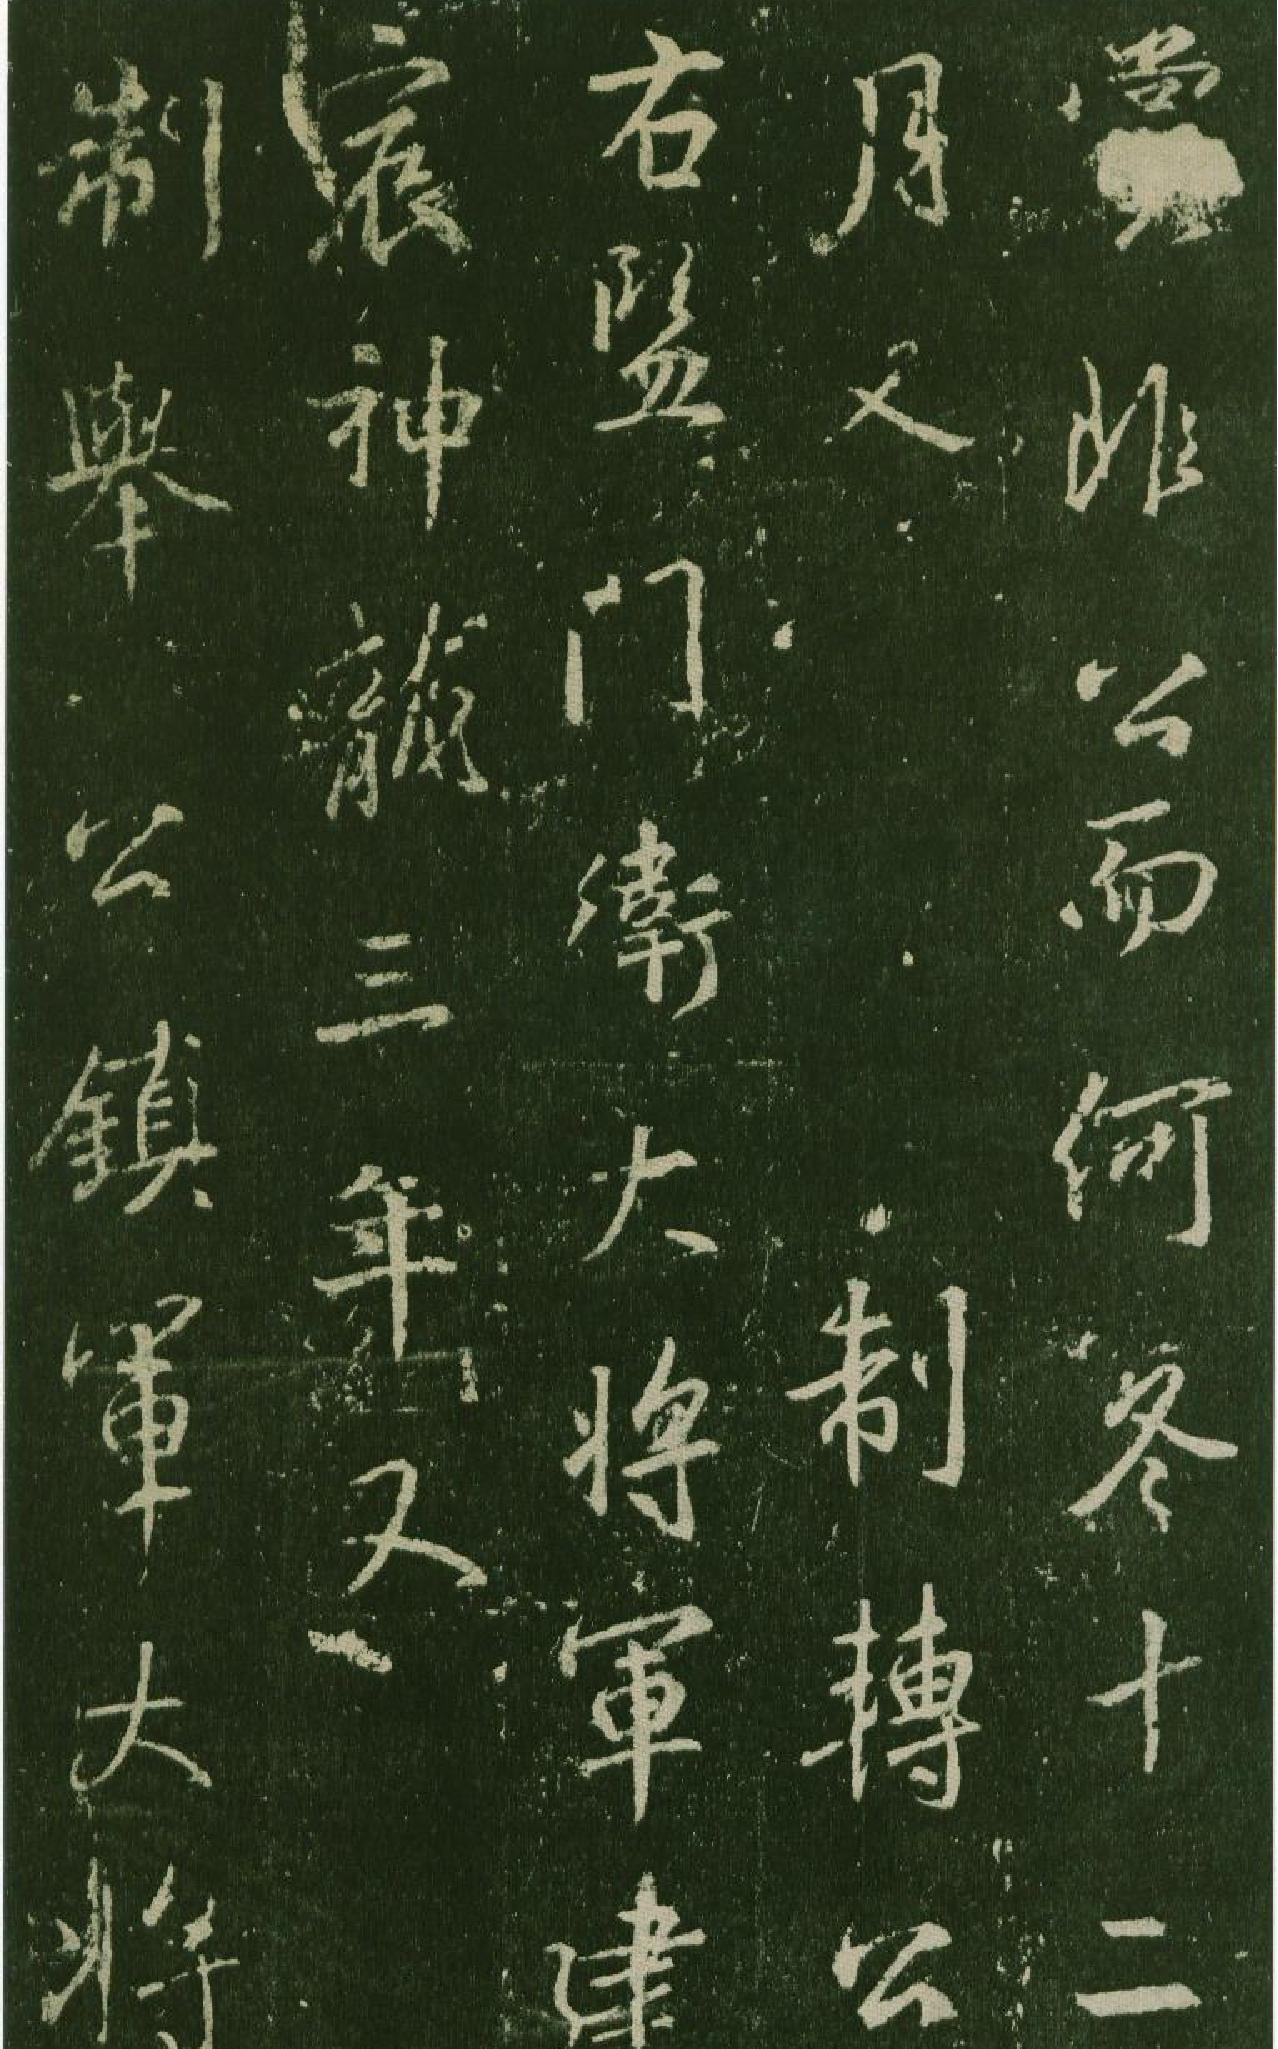 賞非公而何冬十二
月又制轉公
右監門衛大將軍建
宸神龍三年又
制舉公鎮軍大將